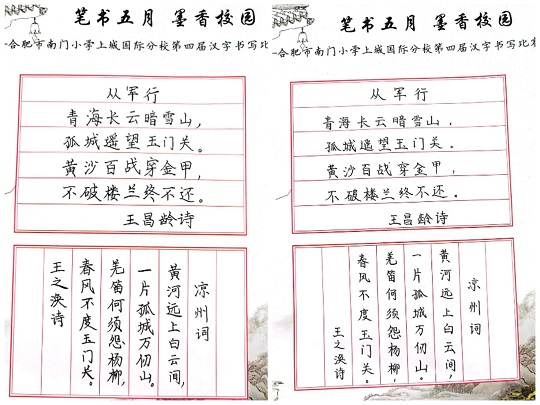 笔书五月 墨香校园
合肥市南门小学上城国际分校第四届汉字书写比
从军行
青海长云暗雪山，
孤城遥望玉门关。
黄沙百战穿金甲，
不破楼兰终不还。
王昌龄诗
凉州词
黄河远上白云间，
一片孤城万仞山。
羌笛何须怨杨柳，
春风不度玉门关。
王之涣诗
笔书五月 墨香校园
合肥市南门小学上城国际分校第四届汉字书写比
从军行
青海长云暗雪山，
孤城遥望玉门关。
黄沙百战穿金甲，
不破楼兰终不还。
王昌龄诗
凉州词
黄河远上白云间，
一片孤城万仞山。
羌笛何须怨杨柳，
春风不度玉门关。
王之涣诗